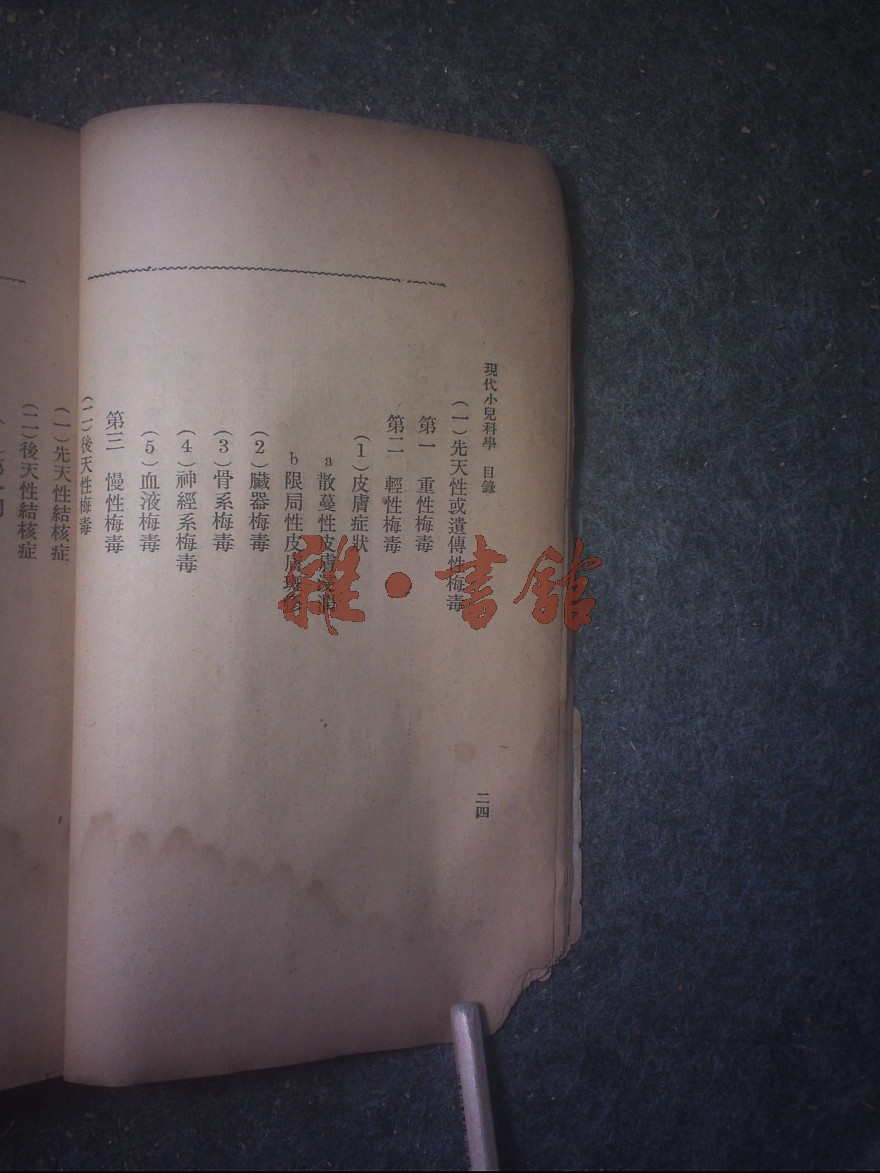 現代小兒科學 目錄
二四
(一)先天性或遺傳性梅毒
第一 重性梅毒
第二 輕性梅毒
(1)皮膚症狀
a 散蔓性皮膚浸潤
b 限局性皮膚斑疹
(2)臟器梅毒
(3)骨系梅毒
(4)神經系梅毒
(5)血液梅毒
第三 慢性梅毒
(二)後天性梅毒
(一)先天性結核症
(二)後天性結核症
雜·書館